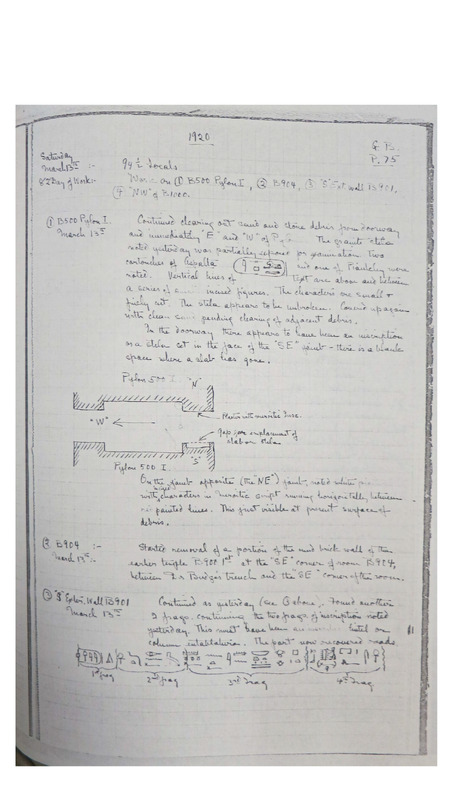 1920
G. B.
P. 75
Saturday
March 13th :-
82nd Day of Work:-
94 1/2 Locals
Work on ① B500 Pylon I, ② B904, ③ "S" Ext wall B901,
④ "NW" of B1000.
① B500 Pylon I.
March 13th
Continued clearing out sand and stone debris from doorway
and immediately "E" and "W" of The granite stela
noted yesterday was partially exposed for examination. Two
cartouches of and one of Piankhy were
noted. Vertical lines of text are above and between
a series of incised figures. The characters are small &
finely cut. The stela appears to be unbroken. Covered up again
with clean sand pending clearing of adjacent debris.
In the doorway there appears to have been an inscription
or a stela set in the face of the "SE" jamb - there is a blank
space where a slab has gone.
Pylon 500 I. "N"
"W"
Plaster with inscription here.
Gap for emplacement of
slab or stela
"S"
Pylon 500 I.
On the jamb opposite (the "NE") jamb, noted white
with characters in script running horizontally between
painted lines. This just visible at present surface of
debris.
② B904 :-
March 13th :-
Started removal of a portion of the mud brick wall of the
earlier temple B900 1st at the "SE" corner of room B904,
between trench and the "SE" corner of the room.
③ "S" Exter. Wall B901
March 13th
Continued as yesterday (see ③ above). Found another
2 frags. continuing the two frags of inscription noted
yesterday. This must have been an lintel or
column entablature. The part now recovered reads
1st frag
2nd frag
3rd frag
4th frag